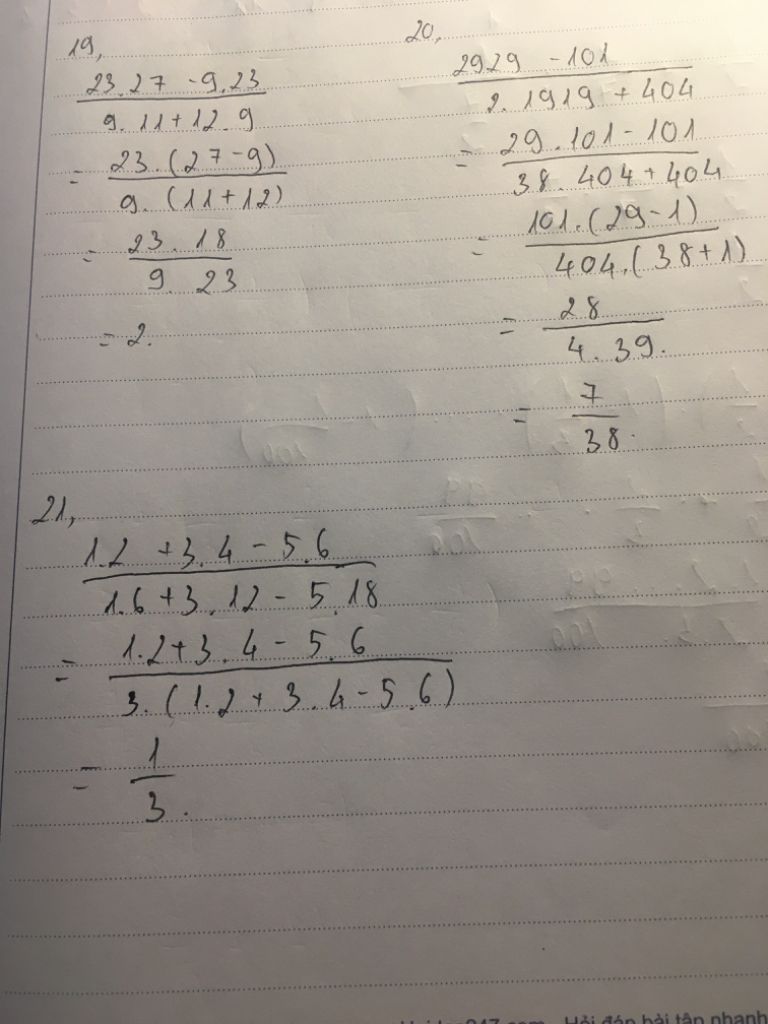 19,
23.27 - 9.23
9.11 + 12.9
= 23.(27-9)
9.(11+12)
= 23.18
9. 23
= 2.
20,
2929 - 101
2.1919 + 404
= 29.101 - 101
38.404 + 404
= 101.(29-1)
404.(38+1)
= 28
4.39.
= 7
38.
21,
1.2 + 3.4 - 5.6
1.6 + 3.12 - 5.18
= 1.2 + 3.4 - 5.6
3.(1.2 + 3.4 - 5.6)
= 1
3.
Hỏi đáp bài tập nhanh